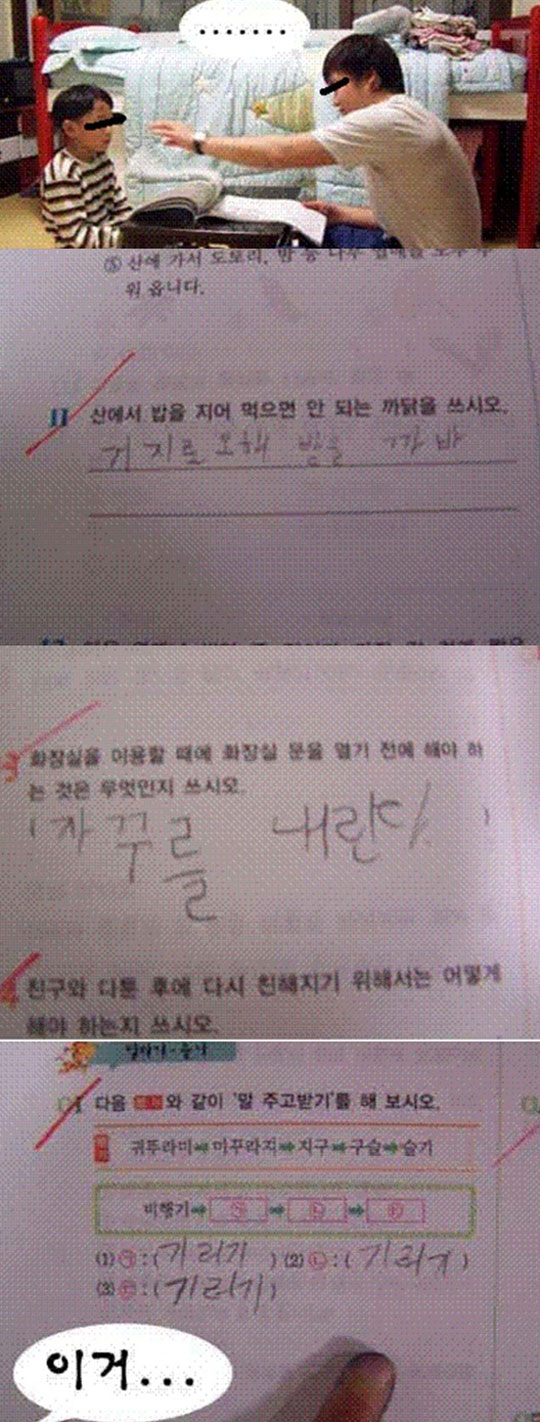 .......
⑤ 산에 가서 도토리, 밤 등 나무 열매를 모두 주
워 옵니다.
11 산에서 밥을 지어 먹으면 안 되는 까닭을 쓰시오.
거지로 오해 받을 까 바
3 화장실을 이용할 때에 화장실 문을 열기 전에 해야 하
는 것은 무엇인지 쓰시오.
( 자꾸를 내린다. )
4 친구와 다툰 후에 다시 친해지기 위해서는 어떻게
해야 하는지 쓰시오.
다음 와 같이 '말 주고받기'를 해 보시오.
귀뚜라미➡미꾸라지➡지구➡구슬➡슬기
비행기➡㉠➡㉡➡㉢
(1) ㉠ : ( 기러기 ) (2) ㉡ : ( 기러기 )
(3) ㉢ : ( 기러기 )
이거...